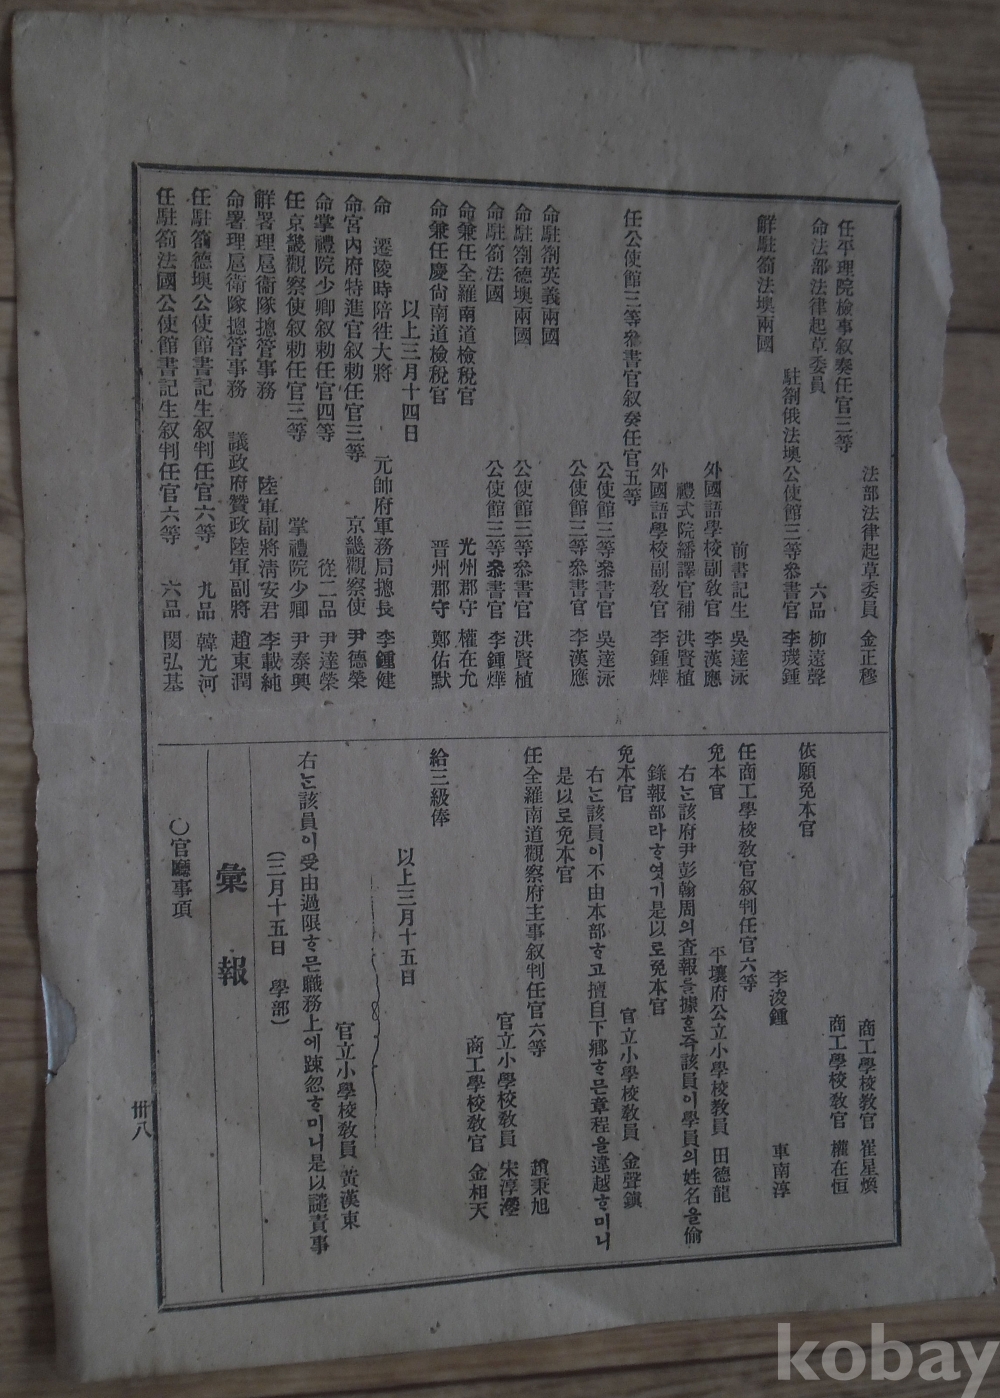 任平理院檢事叙奏任官三等
法部法律起草委員 金正穆
命法部法律起草委員
六品 柳遠聲
駐劄俄法墺公使館三等叅書官 李璣鍾
解駐箚法墺兩國
前書記生 吳達泳
外國語學校副敎官 李漢應
禮式院繙譯官補 洪賢植
外國語學校副敎官 李鍾燁
任公使館三等叅書官叙奏任官五等
公使館三等叅書官 吳達泳
公使館三等叅書官 李漢應
命駐劄英義兩國
命駐劄德墺兩國
公使館三等叅書官 洪賢植
命駐箚法國
公使館三等叅書官 李鍾燁
命兼任全羅南道檢稅官
光州郡守 權在允
命兼任慶尙南道檢稅官
晋州郡守 鄭佑默
以上三月十四日
命 遷陵時陪徃大將
元帥府軍務局摠長 李鍾健
命宮內府特進官叙勅任官三等
京畿觀察使 尹德榮
命掌禮院少卿叙勅任官四等
從二品 尹達榮
任京畿觀察使叙勅任官三等
掌禮院少卿 尹泰興
解署理扈衛隊摠管事務
陸軍副將淸安君 李載純
命署理扈衛隊摠管事務
議政府贊政陸軍副將 趙東潤
任駐箚德墺公使館書記生叙判任官六等
九品 韓光河
任駐箚法國公使館書記生叙判任官六等
六品 閔弘基
商工學校敎官 崔星煥
商工學校敎官 權在恒
依願免本官
李浚鍾
車南淳
任商工學校敎官叙判任官六等
平壤府公立小學校敎員 田德龍
免本官
右는該府尹彭翰周의査報를據혼즉該員이學員의姓名을偷
錄報部라ᄒᆞ엿기是以로免本官
官立小學校敎員 金聲鎭
免本官
右는該員이不由本部ᄒᆞ고擅自下鄕ᄒᆞ믄章程을違越ᄒᆞ미니
是以로免本官
任全羅南道觀察府主事叙判任官六等
趙秉旭
官立小學校敎員 宋淳瀅
商工學校敎官 金相天
給三級俸
以上三月十五日
官立小學校敎員 黃漢東
右는該員이受由過限ᄒᆞ믄職務上에踈忽ᄒᆞ미니是以譴責事
(三月十五日 學部)
彙報
○官廳事項
卌八
kobay